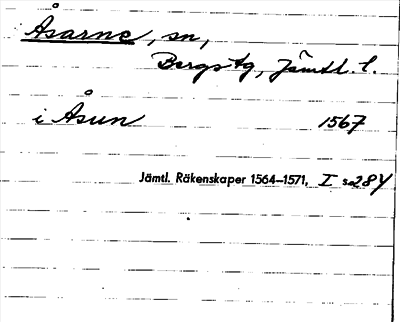 Åsarne, sn,
Bergs tg, Jämtl. l.
i Åsun 1567
Jämtl. Räkenskaper 1564–1571, I s. 284